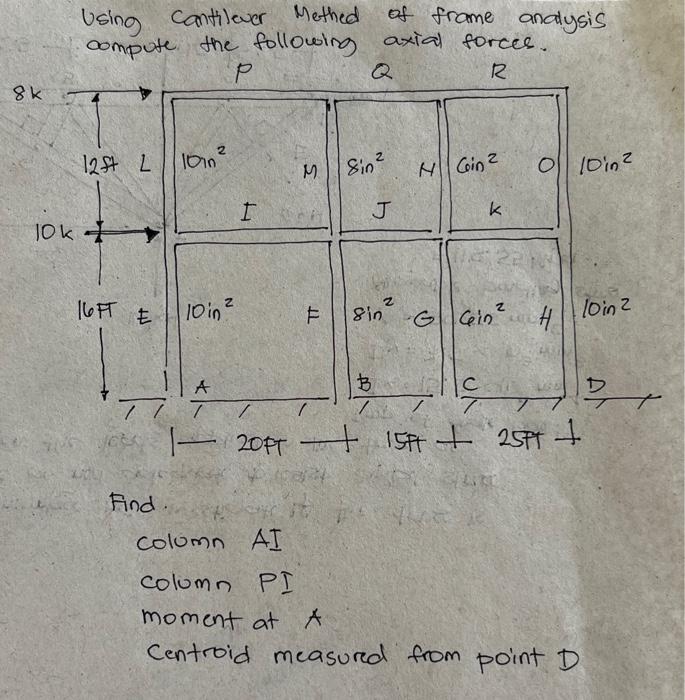 Using Cantilever Method of frame analysis
compute the following axial forces.
P Q R
8k
12ft L 10in² M 8in² N 6in² O 10in²
I J K
10k
16FT E 10in² F 8in² G 6in² H 10in²
A B C D
20FT 15FT 25FT
Find.
column AI
column PI
moment at A
Centroid measured from point D